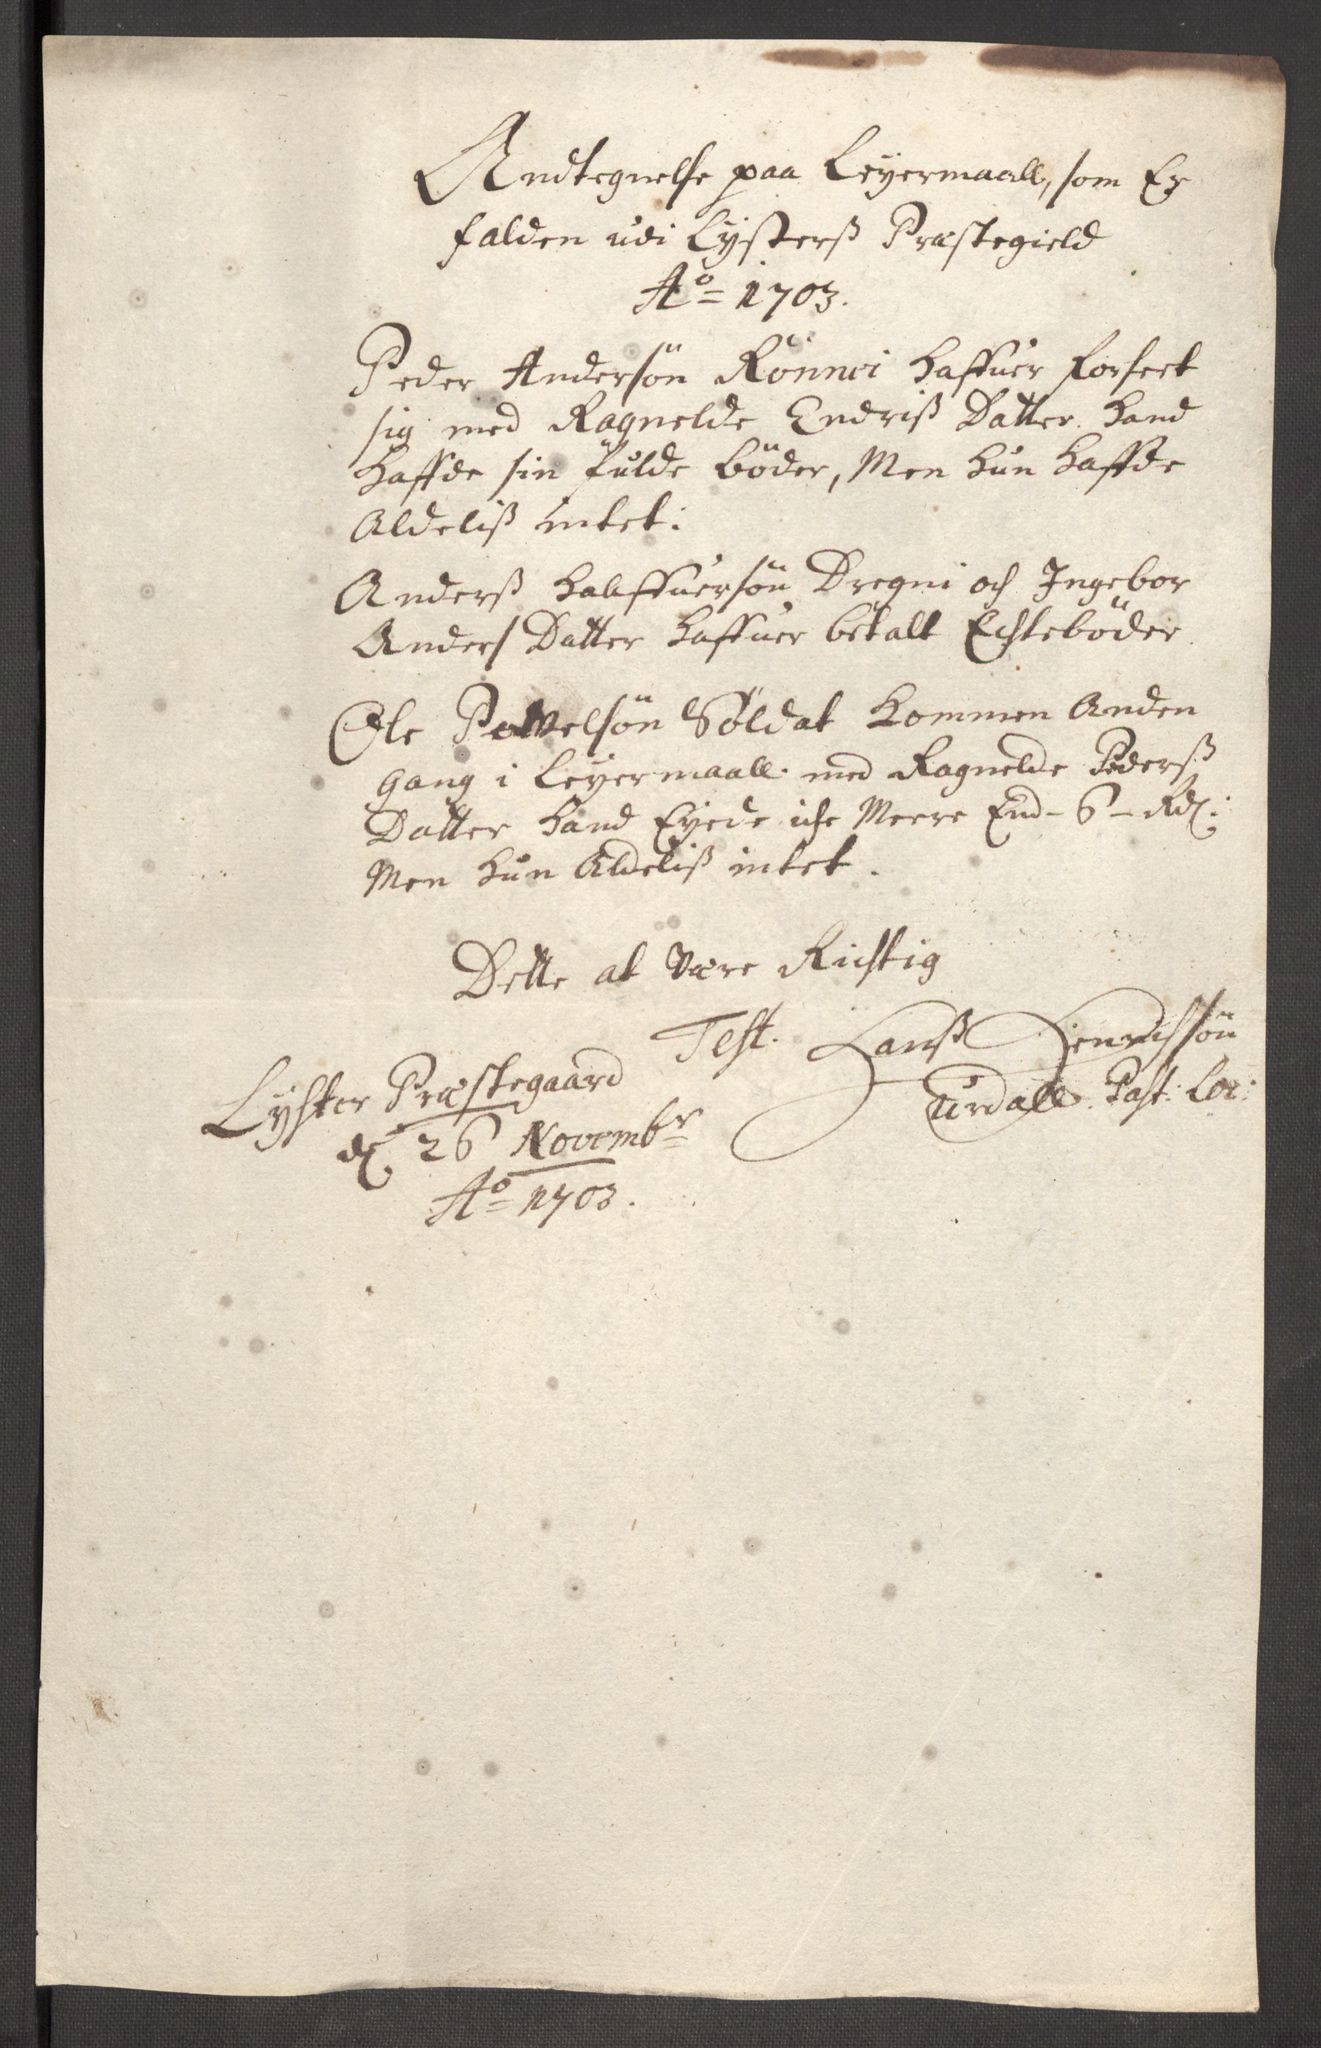 Andtegnelse paa Leyermaall, som Er
falden udi Lysterß Præstegield
Aº 1703.
Peder Andersön Rönnei haffuer forseet
sig med Ragnelde Endriß Datter. hand
haffde sin fulde böder, Men hun haffde
Aldeliß intet:
Anderß halffuersön Dregni och Ingebor
Anders Datter haffuer betalt Echteböder
Ole Povelsön Söldat kommen Anden
gang i Leyermaall med Ragnelde Pederß
Datter hand Eyede iche Meere End - 6 - Rdr:
Men hun Aldeliß intet.
Dette at være Richtig
Test. Hanß Henrichsön
Urdall. Past: Loc:
Lyster Præstegaard
d 26 Novembr
Aº 1703.